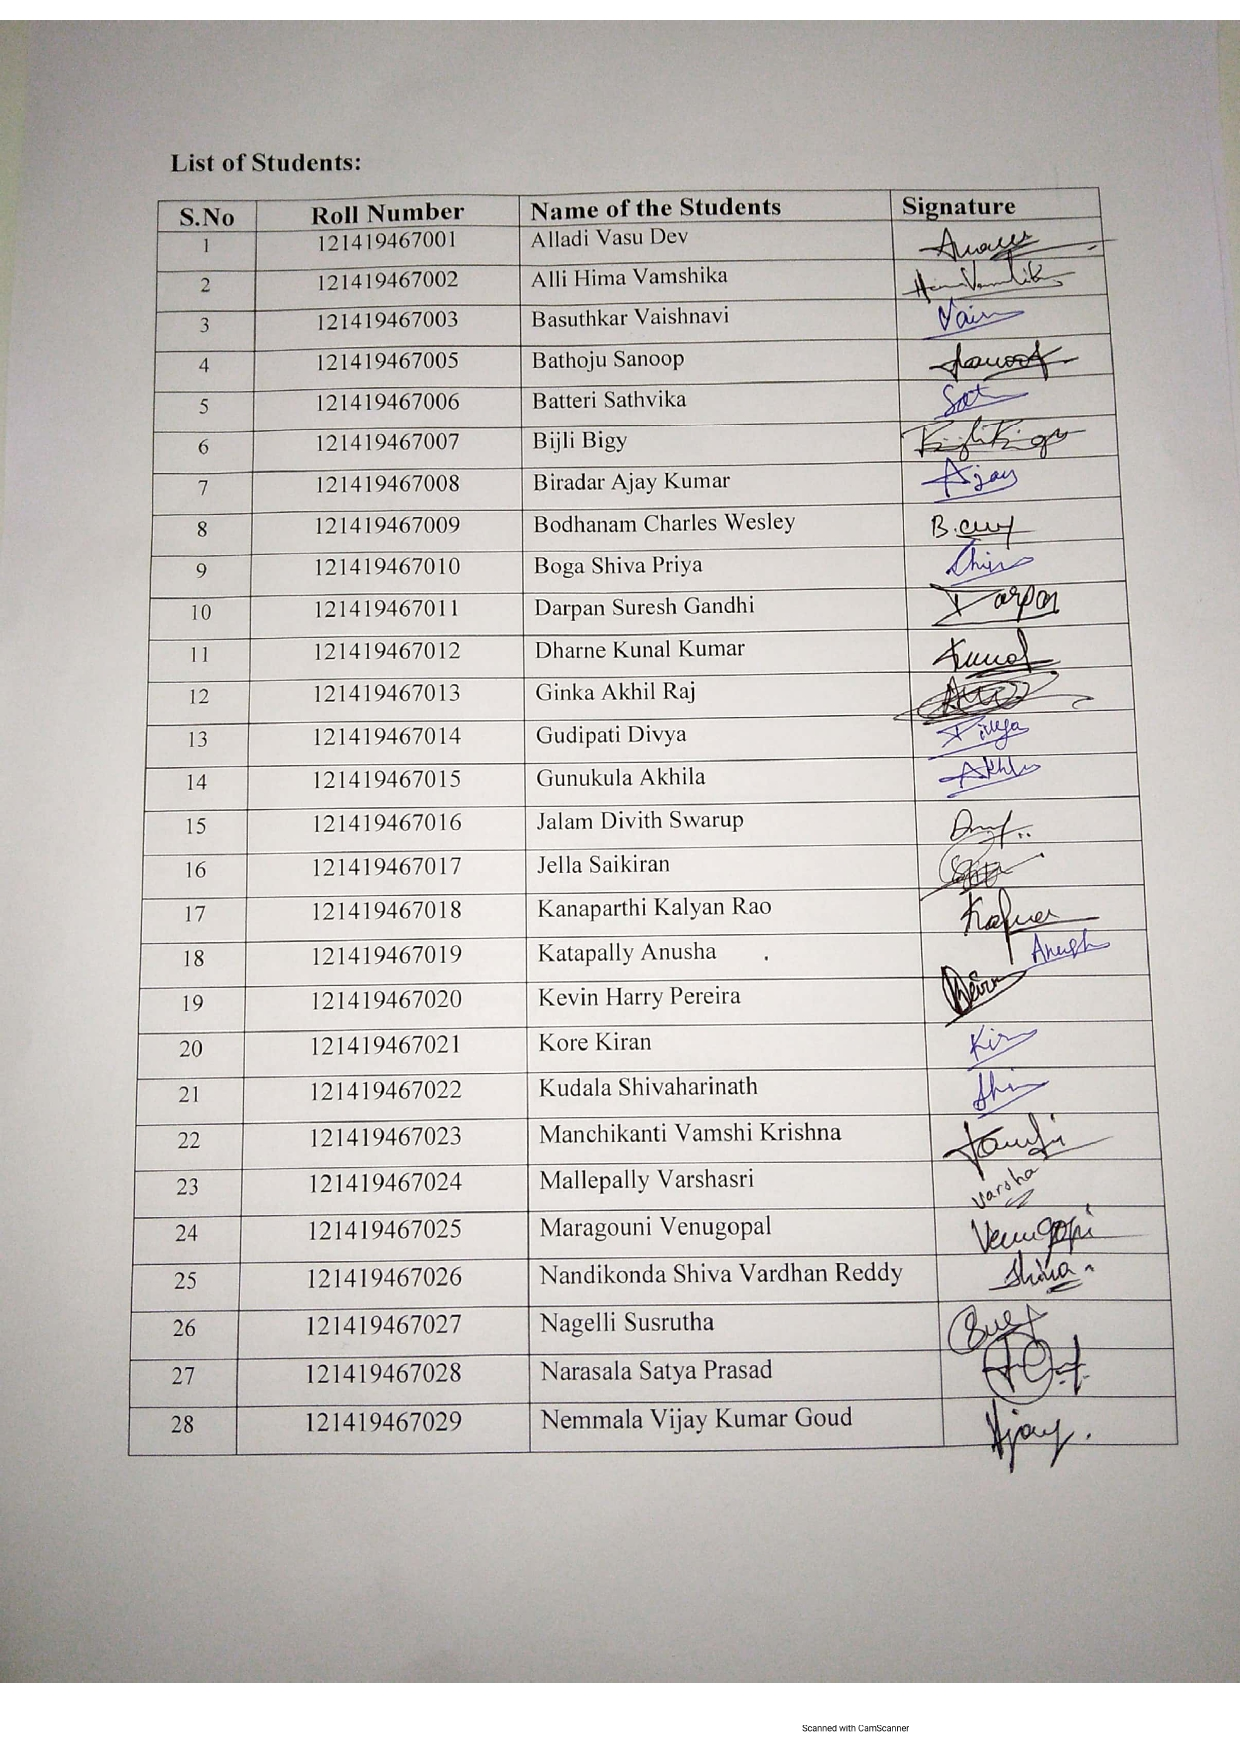 List of Students:
S.No Roll Number Name of the Students Signature
1 121419467001 Alladi Vasu Dev
2 121419467002 Alli Hima Vamshika
3 121419467003 Basuthkar Vaishnavi
4 121419467005 Bathoju Sanoop
5 121419467006 Batteri Sathvika
6 121419467007 Bijli Bigy
7 121419467008 Biradar Ajay Kumar Ajay
8 121419467009 Bodhanam Charles Wesley
9 121419467010 Boga Shiva Priya
10 121419467011 Darpan Suresh Gandhi Darpan
11 121419467012 Dharne Kunal Kumar Kunal
12 121419467013 Ginka Akhil Raj
13 121419467014 Gudipati Divya Divya
14 121419467015 Gunukula Akhila
15 121419467016 Jalam Divith Swarup
16 121419467017 Jella Saikiran
17 121419467018 Kanaparthi Kalyan Rao
18 121419467019 Katapally Anusha Anush
19 121419467020 Kevin Harry Pereira
20 121419467021 Kore Kiran
21 121419467022 Kudala Shivaharinath
22 121419467023 Manchikanti Vamshi Krishna
23 121419467024 Mallepally Varshasri Varsha
24 121419467025 Maragouni Venugopal
25 121419467026 Nandikonda Shiva Vardhan Reddy Shiva
26 121419467027 Nagelli Susrutha
27 121419467028 Narasala Satya Prasad
28 121419467029 Nemmala Vijay Kumar Goud
Scanned with CamScanner